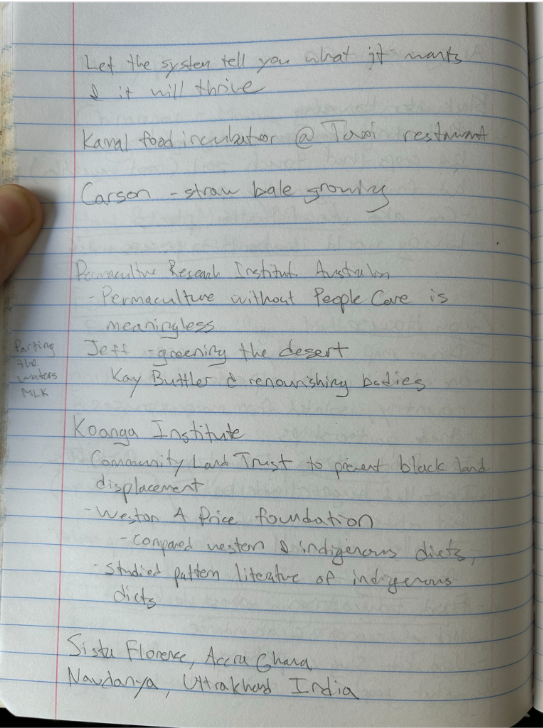 Let the system tell you what it wants
& it will thrive
Kamal food incubator @ Taxi restaurant
Carson - straw bale growing
Permaculture Research Institute Australia
- Permaculture without People Care is
meaningless
Jeff - greening the desert
Kay Buttler & renourishing bodies
Parting
the
waters
MLK
Koanga Institute
Community Land Trust to prevent black land
displacement
- Weston A Price foundation
- Compared western & indigenous diets,
- Studied pattern literature of indigenous
diets
Sista Florence, Accra Ghana
Navdanya, Uttrakhand India